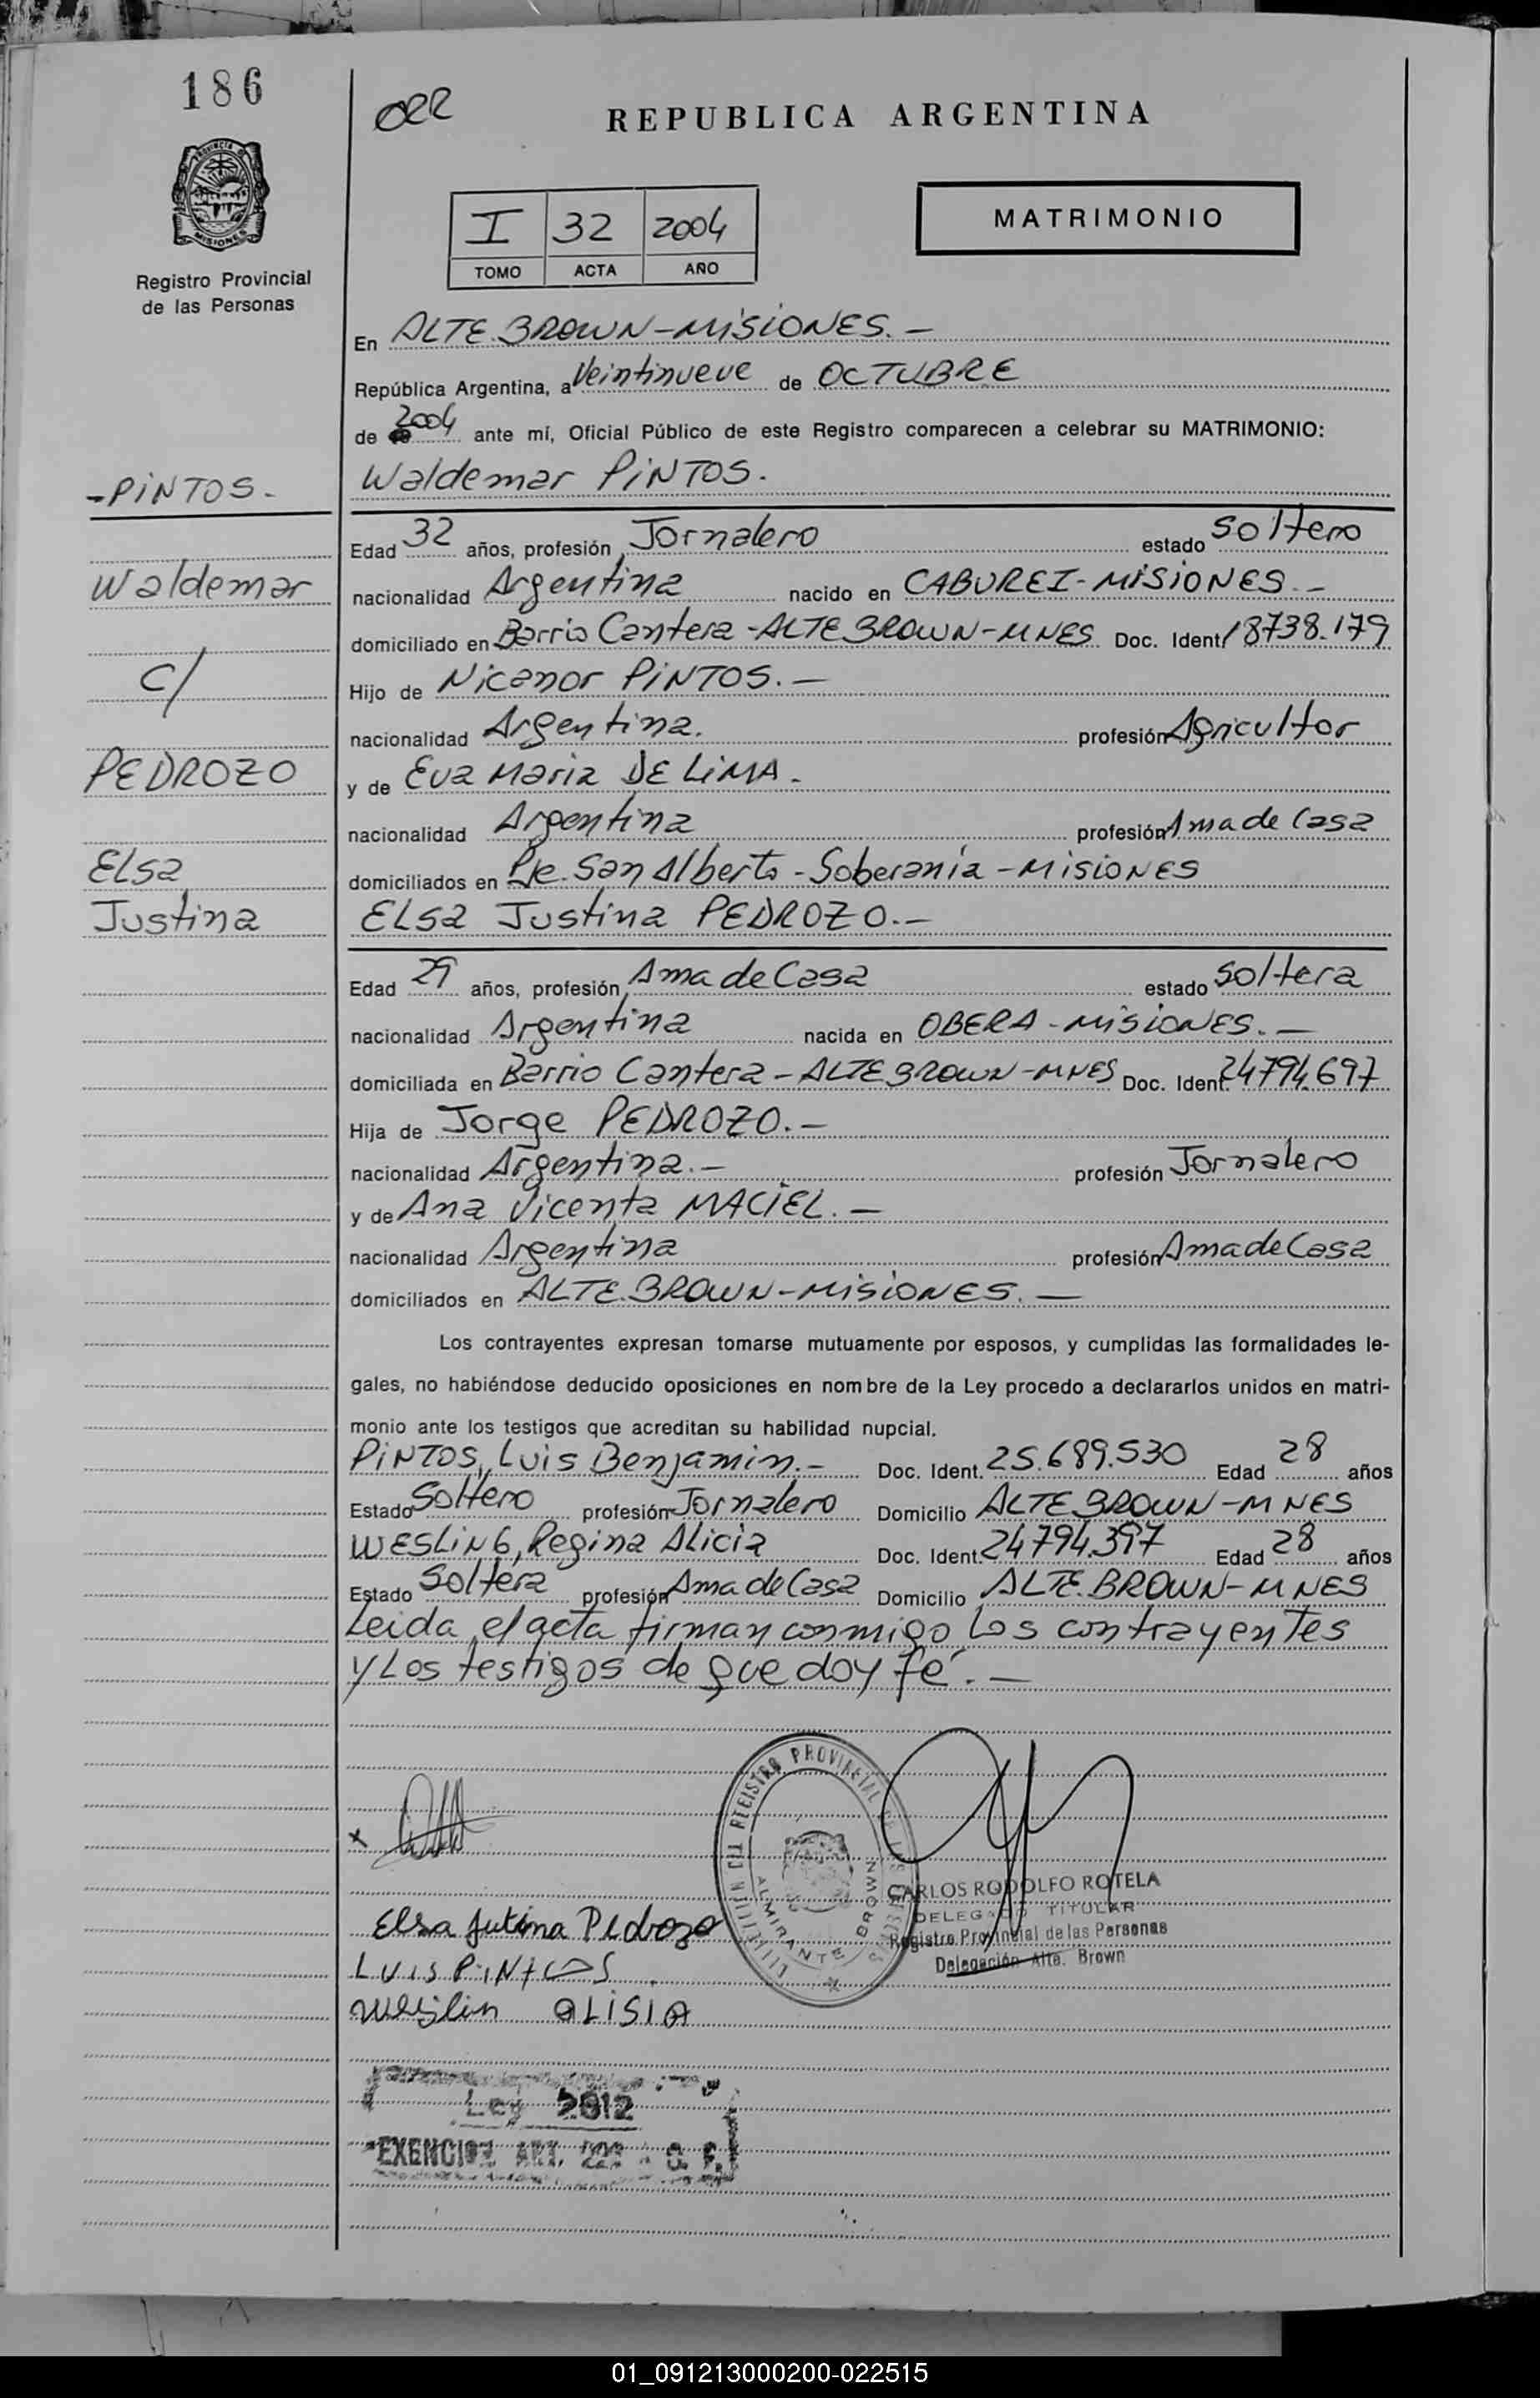 186
REPUBLICA ARGENTINA
PROVINCIA
MISIONES
Registro Provincial
de las Personas
I 32 2004
TOMO ACTA AÑO
MATRIMONIO
En ALTE. BROWN-MISIONES.-
República Argentina, a Veintinueve de OCTUBRE
de 2004 ante mí, Oficial Público de este Registro comparecen a celebrar su MATRIMONIO:
-PINTOS-
Waldemar
c/
PEDROZO
Elsa
Justina
Waldemar PINTOS.
Edad 32 años, profesión Jornalero estado soltero
nacionalidad Argentina nacido en CABUREI-MISIONES.-
domiciliado en Barrio Cantera-ALTE BROWN-MNES Doc. Ident. 18738.179
Hijo de Nicanor PINTOS.-
nacionalidad Argentina. profesión Agricultor
y de Eva Maria DE LIMA.
nacionalidad Argentina profesión Ama de Casa
domiciliados en Pje. San Alberto-Soberanía-MISIONES
Elsa Justina PEDROZO.-
Edad 29 años, profesión Ama de Casa estado soltera
nacionalidad Argentina nacida en OBERA-MISIONES.-
domiciliada en Barrio Cantera-ALTE BROWN-MNES Doc. Ident. 24794.697
Hija de Jorge PEDROZO.-
nacionalidad Argentina.- profesión Jornalero
y de Ana Vicenta MACIEL.-
nacionalidad Argentina profesión Ama de Casa
domiciliados en ALTE. BROWN-MISIONES.-
Los contrayentes expresan tomarse mutuamente por esposos, y cumplidas las formalidades le-
gales, no habiéndose deducido oposiciones en nombre de la Ley procedo a declararlos unidos en matri-
monio ante los testigos que acreditan su habilidad nupcial.
PINTOS, Luis Benjamin.- Doc. Ident. 25.689.530 Edad 28 años
Estado Soltero profesión Jornalero Domicilio ALTE BROWN-MNES
WESLING, Regina Alicia Doc. Ident. 24794.397 Edad 28 años
Estado Soltera profesión Ama de Casa Domicilio ALTE. BROWN-MNES
Leida el acta firman conmigo los contrayentes
y Los testigos de que doy fé.-
x
REGISTRO PROVINCIAL DE LAS
ALMIRANTE BROWN
CARLOS RODOLFO ROTELA
DELEGADO TITULAR
Registro Provincial de las Personas
Delegación Alte. Brown
Elsa Jutina Pedrozo
LUIS PINTOS
Weslin ALISIA
Ley 2812
EXENCION ART.
01_091213000200-022515